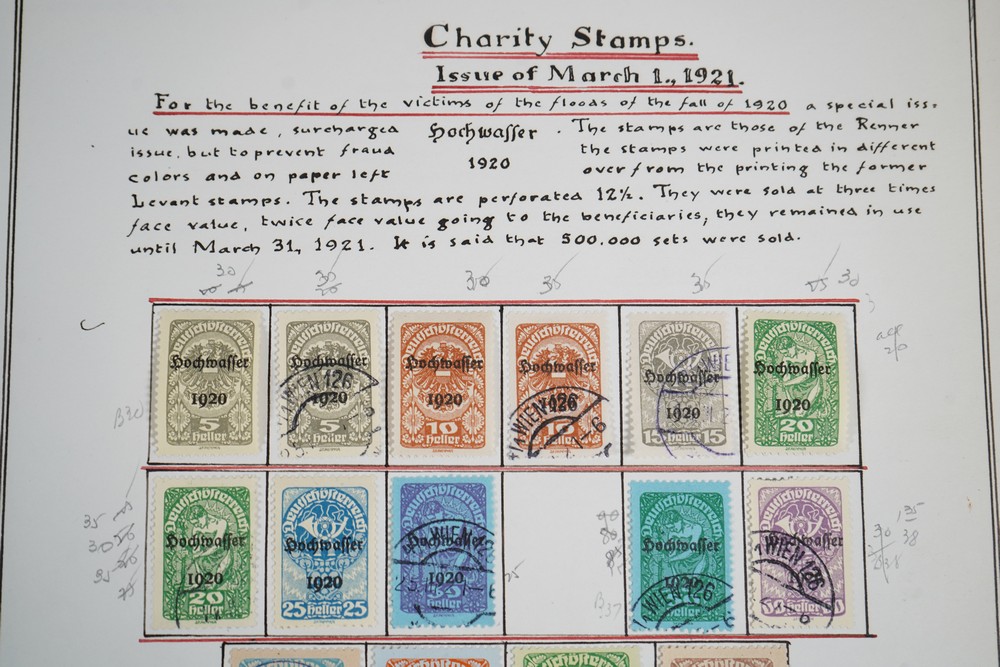 Charity Stamps.
Issue of March 1., 1921.
For the benefit of the victims of the floods of the fall of 1920 a special iss=
ue was made, surcharged Hochwasser . The stamps are those of the Renner
issue, but to prevent fraud 1920 the stamps were printed in different
colors and on paper left over from the printing the former
Levant stamps. The stamps are perforated 12½. They were sold at three times
face value, twice face value going to the beneficiaries; they remained in use
until March 31, 1921. It is said that 500.000 sets were sold.
30 30 35 35 30
B30
Deutschösterreich Deutschösterreich Deutschösterreich Deutschösterreich Deutschösterreich Deutschösterreich
Hochwasser Hochwasser Hochwasser Hochwasser Hochwasser Hochwasser
1920 1920 1920 1920 1920 1920
WIEN 126 WIEN 126 WIE
5 5 10 10 15 15 20
Heller Heller Heller Heller Heller Heller
Deutschösterreich Deutschösterreich Deutschösterreich Deutschösterreich Deutschösterreich
Hochwasser Hochwasser Hochwasser Hochwasser Hochwasser
1920 1920 1920 1920
WIEN 126 WIEN 126 WIEN 126
20 25 25
Heller Heller Heller Heller
35
30
B37
30
38
B38